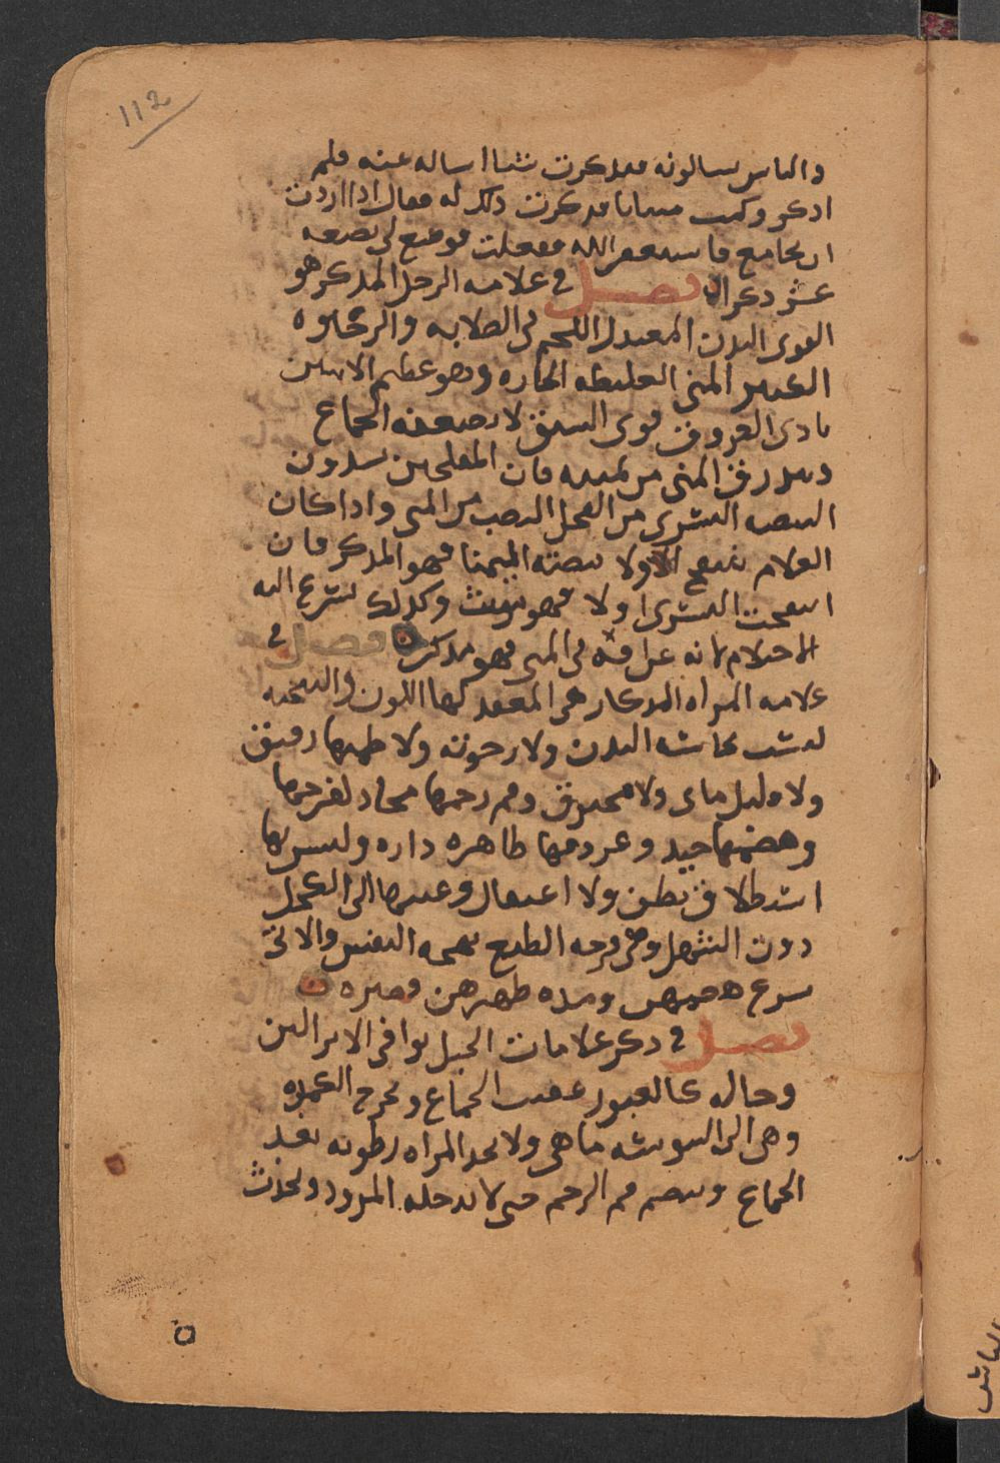 112
والناس يسالونه فقدكرت شيا اساله عنه فلم
ادكر وكنت مينانا فدكرت دلك له فقال ادا اردت
ان تجامع فاستغفر الله ففعلت فوضع لى بضعه
عشر دكرا فصل فى علامه الرجل المدكر هو
القوى البدن المعتدل اللحم فى الصلابه والرخاوه
الكثير المنى الغليظه الحاره وهو عظيم الانثيين
بادى العروق قوى الشبق لا يضعفه الجماع
ويزرق المنى من يمينه فان الملقحين يشدون
البيضه اليسرى من الفحل ليصب من اليمنى وادا كان
الغلام ينتفخ اولا بيضته اليمنا فهو المدكر فان
انتفخت اليسرى اولا فهو مؤنث وكدلك يسرع اليه
الاحتلام لا انه عن افة فى المنى فهو مدكر فصل فى
علامه المراه المدكار هى المعتدلها اللون والسحنه
ليست بجاسيه البدن ولا رخوته ولا طمثها رقيق
ولا قليل ماى ولا محترق وفم رحمها محاد لفرجها
وهضمها جيد وعروقها ظاهره داره وليس بها
استطلاق بطن ولا اعتقال وعينيها الى الكحل
دون الشهل وهى فرحه الطبع بهجه النفس والاتى
يسرع حيضهن ومده طهرهن قصيره
فصل فى دكر علامات الحبل توافى الانزالين
وحاله كالفتور عقيب الجماع وتخرج الكمره
وهى الى اليبوسه ما هى ولا تجد المراه رطوبه بعد
الجماع وينضم فم الرحم حتى لا يدخله المرود ويحدث